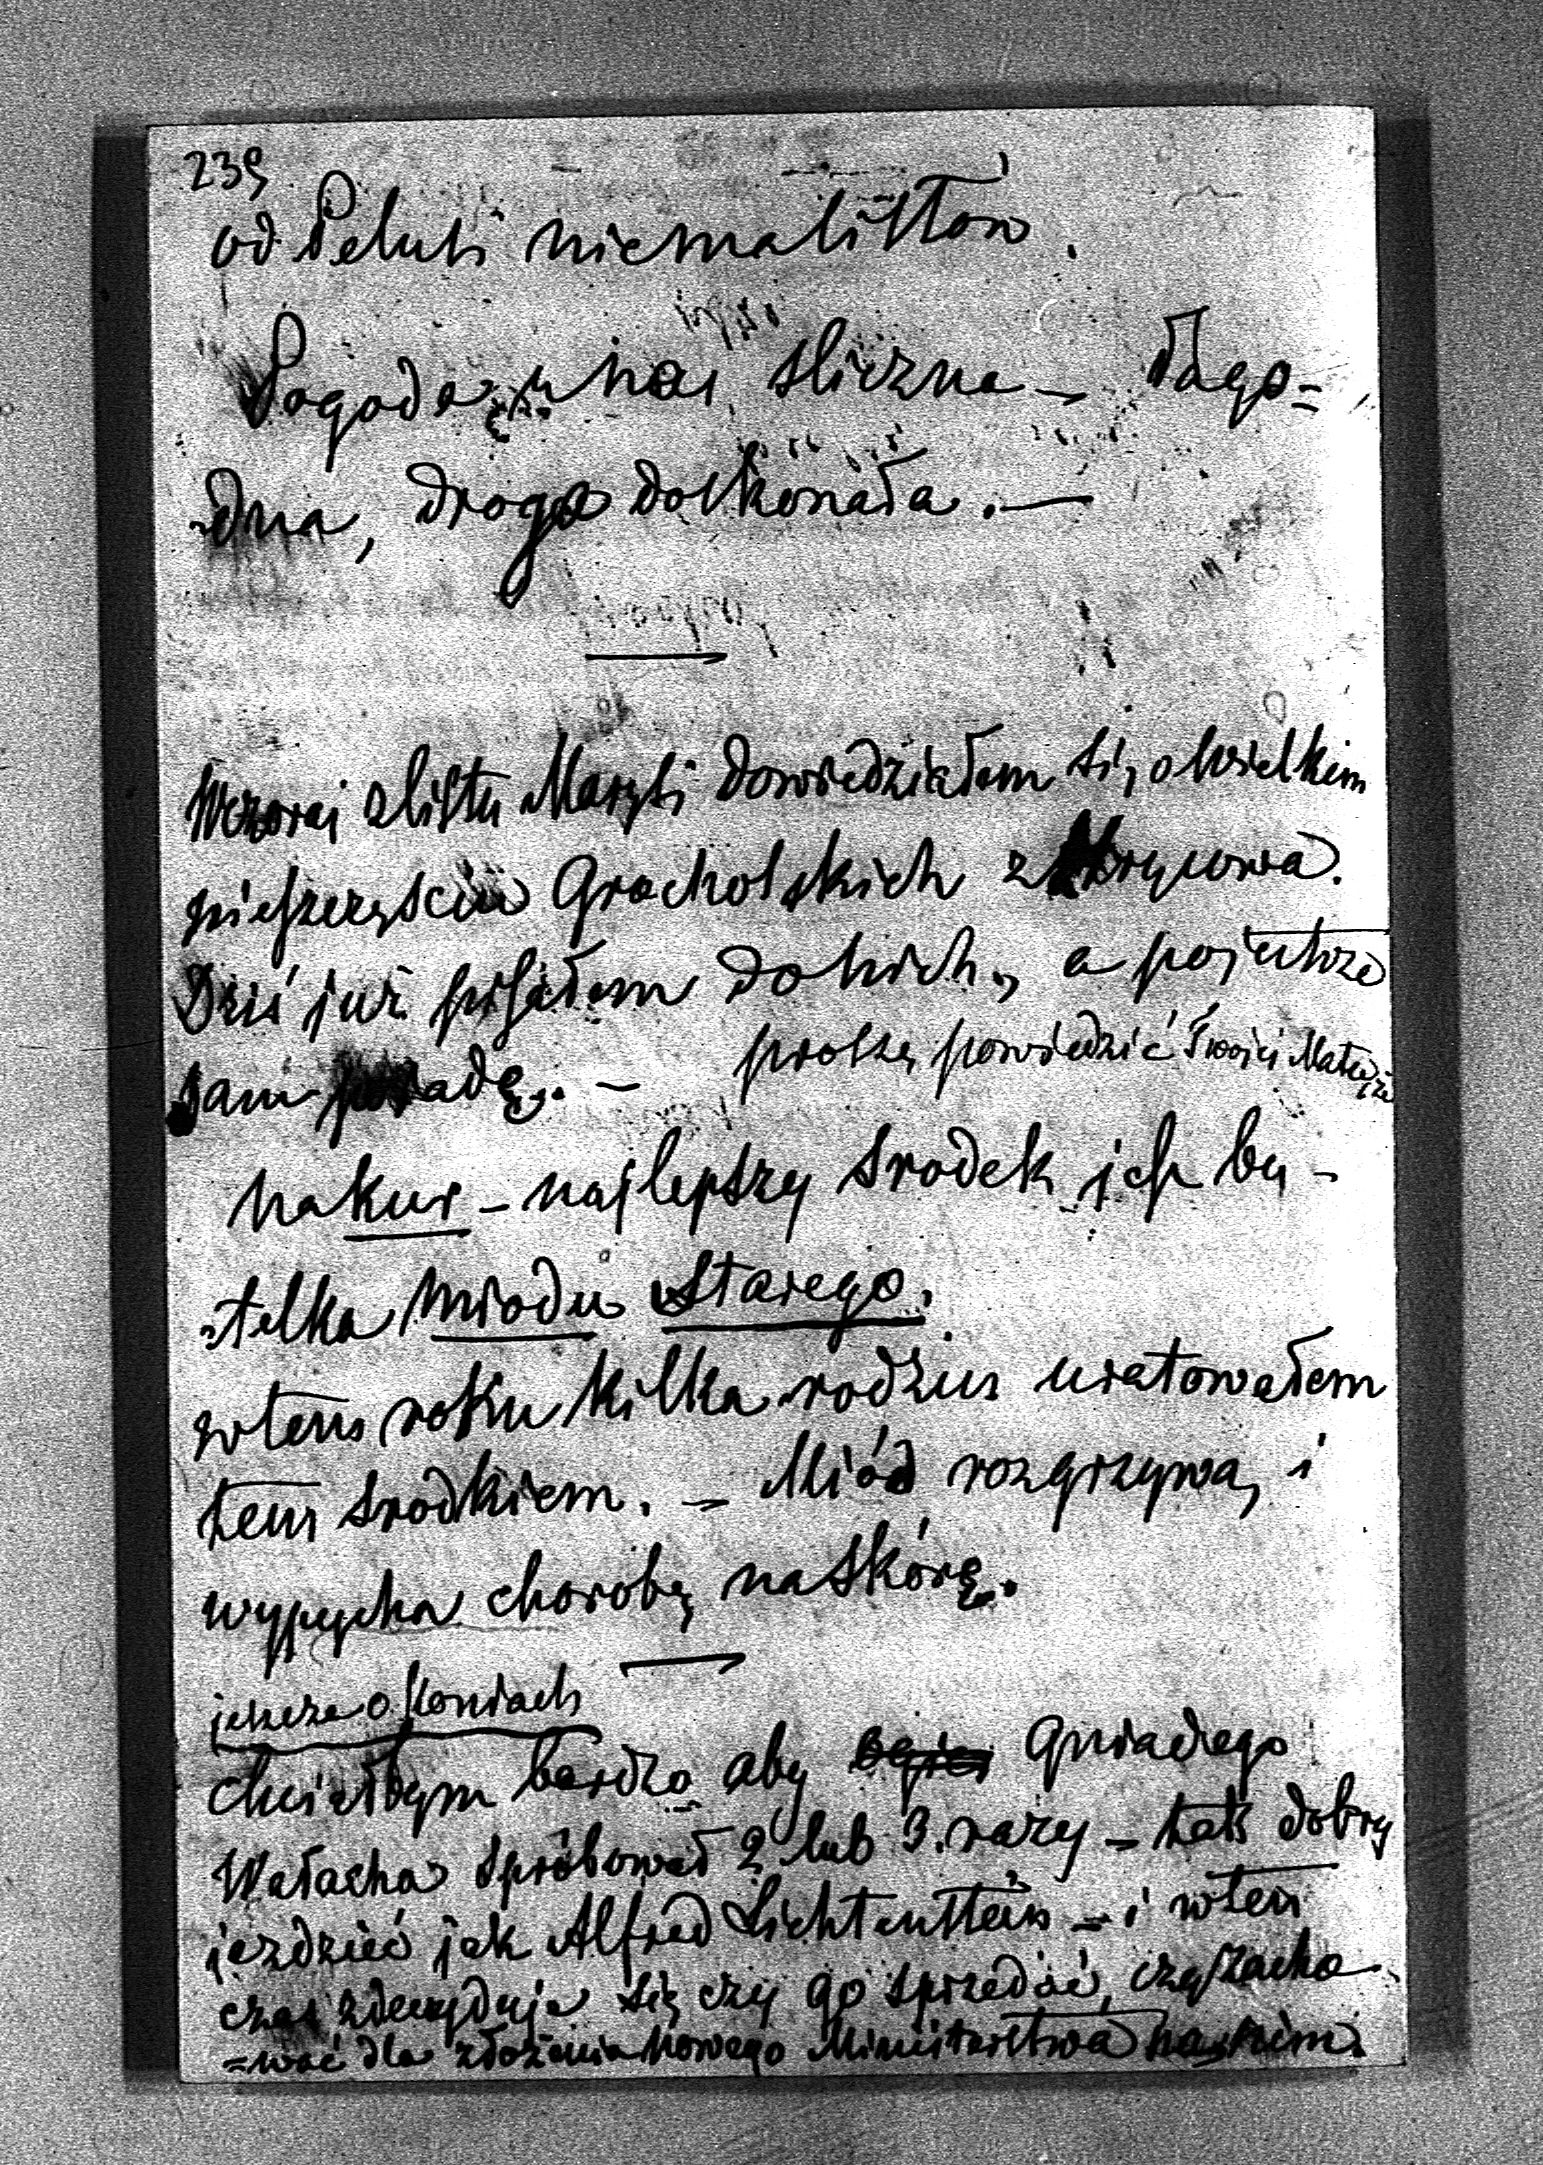 239
od Peluti niema listów.
Pogoda u nas sliczna – łago=
dna, droga doskonała. –
Wczoraj z listu Maryti dowiedziałem się o wielkim
nieszczęsciu Grocholskich z
Dziś już pisałem do nich, a pojutrze
sam jadę. –
proszę powiedzić Twojej Matce, że
na kur – najlepszy srodek jest bu-
telka miodu starego.
w tem roku kilka rodzin uratowałem
tem srodkiem. – Miód rozgrzywa, i
wypycha chorobę na skórę.
jeszcze o koniach
chciałbym bardzo aby Gniadego
Wałacha spróbował 2 lub 3. razy – tak dobry
jezdziec jak Alfred Lichtenstein – i w ten
czas zdecyduje się czy go sprzedać, czy zacho
=wać dla złożenia nowego Ministerstwa na nim.